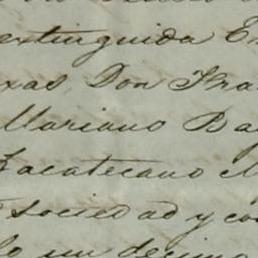 extinguida E
xas, Don Fra
Mariano Ba
Zacatecano M
sociedad y co
lo un decimo